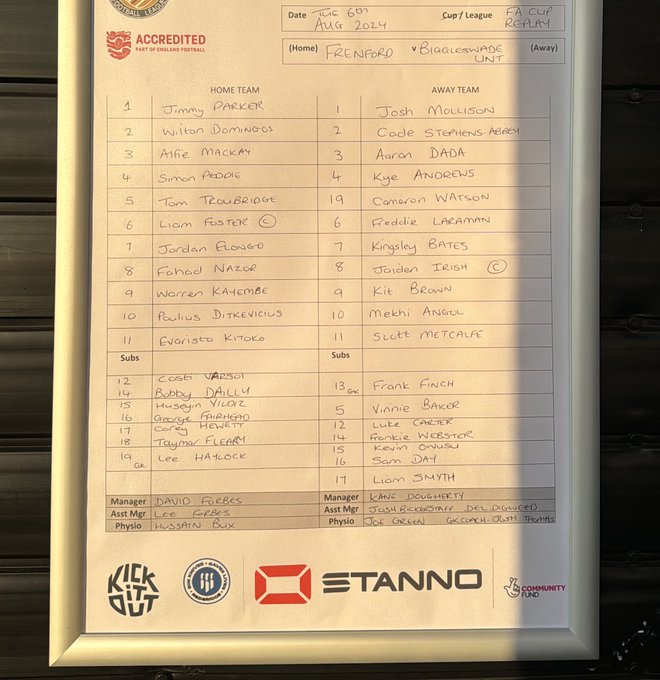 FOOTBALL LEAGUE
ACCREDITED
PART OF ENGLAND FOOTBALL
Date TUE 6th AUG 2024 Cup / League FA CUP REPLAY
(Home) FRENFORD v BIGGLESWADE UNT (Away)
HOME TEAM AWAY TEAM
1 Jimmy PARKER 1 Josh MOLLISON
2 Wilton DOMINGOS 2 Cade STEPHENS-ABBEY
3 Alfie MACKAY 3 Aaron DADA
4 Simon PEDDIE 4 Kye ANDREWS
5 Tom TROUBRIDGE 19 Cameron WATSON
6 Liam FOSTER (C) 6 Freddie LARAMAN
7 Jordan ELONGO 7 Kingsley BATES
8 Fahad NAZOR 8 Jaiden IRISH (C)
9 Warren KAYEMBE 9 Kit BROWN
10 Paulius DITKEVICIUS 10 Mekhi ANGOL
11 Evaristo KITOKO 11 Scott METCALFE
Subs Subs
12 Costi VARSOI 13 GK Frank FINCH
14 Bobby DAILLY
15 Huseyin YILDIZ 5 Vinnie BAKER
16 George FAIRHEAD 12 Luke CARTER
17 Corey HEWETT 14 Frankie WEBSTER
18 Taymar FLEARY 15 Kevin OWUSU
19 GK Lee HAYLOCK 16 Sam DAY
17 Liam SMYTH
Manager DAVID FORBES Manager KANE DOUGHERTY
Asst Mgr LEE FORBES Asst Mgr JOSH BICKERSTAFF DEL DIGWEED
Physio HUSSAIN BUX Physio JOE GREEN GK COACH - JOSH THOMAS
KICK IT OUT
STANNO
COMMUNITY FUND